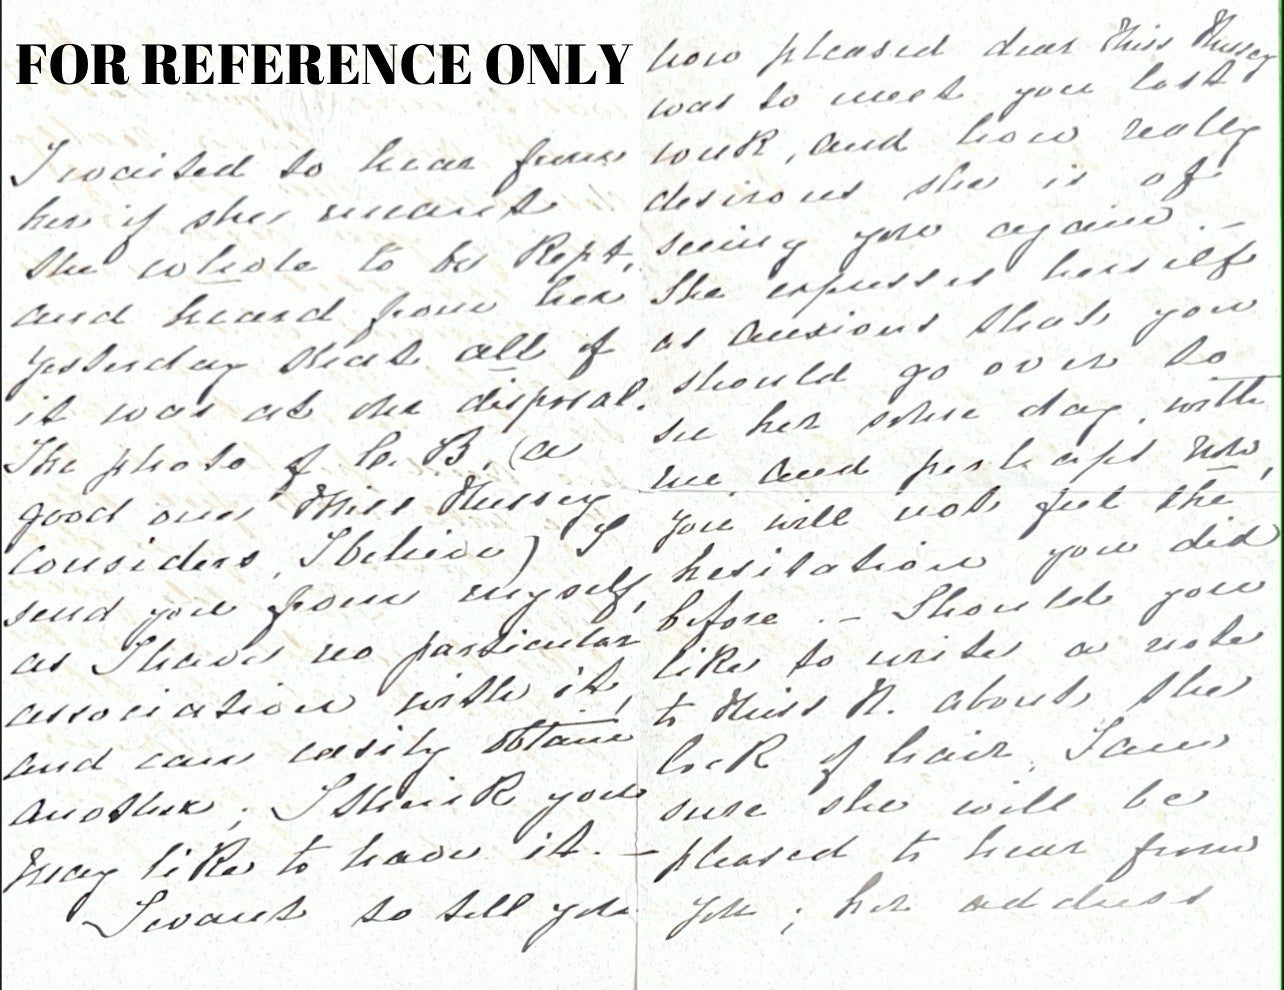 FOR REFERENCE ONLY
I waited to hear from
her if she meant
the whole to be kept,
and heard from her
yesterday that all of
it was at our disposal.
The photo of C. B. (a
good one Miss Nussey
considers, I believe) I
send you from myself,
as I have no particular
association with it,
and can easily obtain
another; I think you
may like to have it. —
I want to tell you
how pleased dear Miss Nussey
was to meet you last
week, and how really
desirous she is of
seeing you again. —
She expresses herself
as anxious that you
should go over to
see her some day, with
me, and perhaps now,
you will not feel the
hesitation you did
before. — Should you
like to write a note
to Miss N. about the
lock of hair, I am
sure she will be
pleased to hear from
you; her address